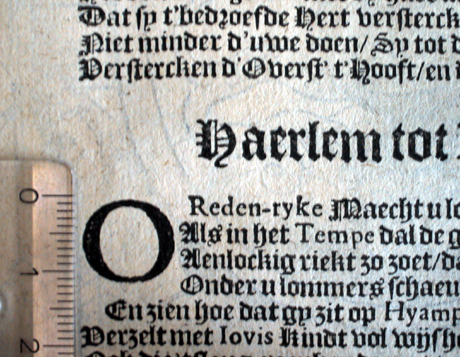 Dat sy t'bedroefde Hert versterck
Niet minder d'uwe doen/ Sy tot d
Verstercken d'Overst' t'Hooft/en
Haerlem tot
O Reden-ryke Maecht u lo
Als in het Tempe dal de g
Aenlockig riekt zo zoet/da
Onder u lommers schaeu
En zien hoe dat gy zit op Hyamp
Verzelt met Iovis Kindt vol wijsh
0
1
2